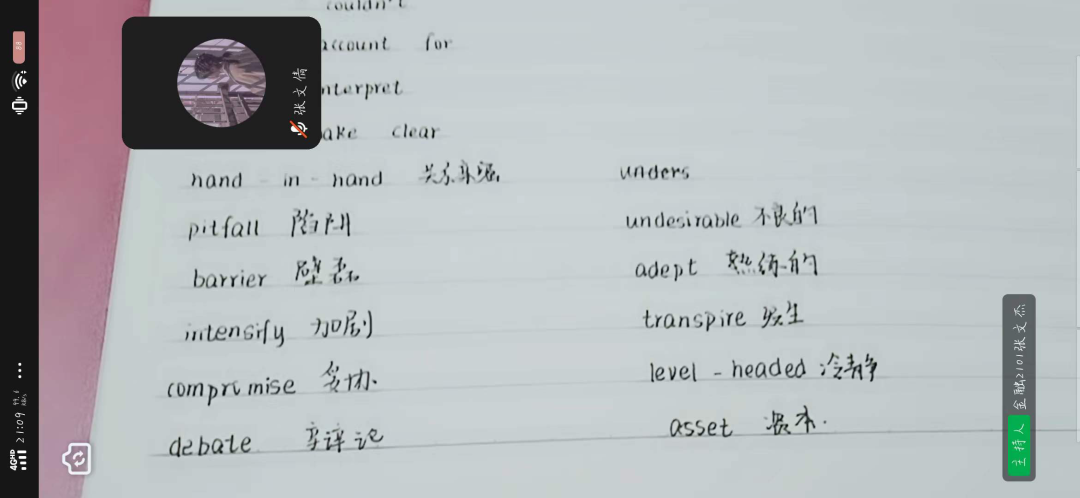 couldn't
account for
nterpret
ake clear
hand-in-hand
unders
pitfall 陷阱
undesirable 不良的
barrier 壁垒
adept 熟练的
intensify 加剧
transpire 发生
compromise 妥协
level-headed 冷静
debate
asset 资本.
张文倩
主持人 金融2101张文杰
21:09
4GHD
88